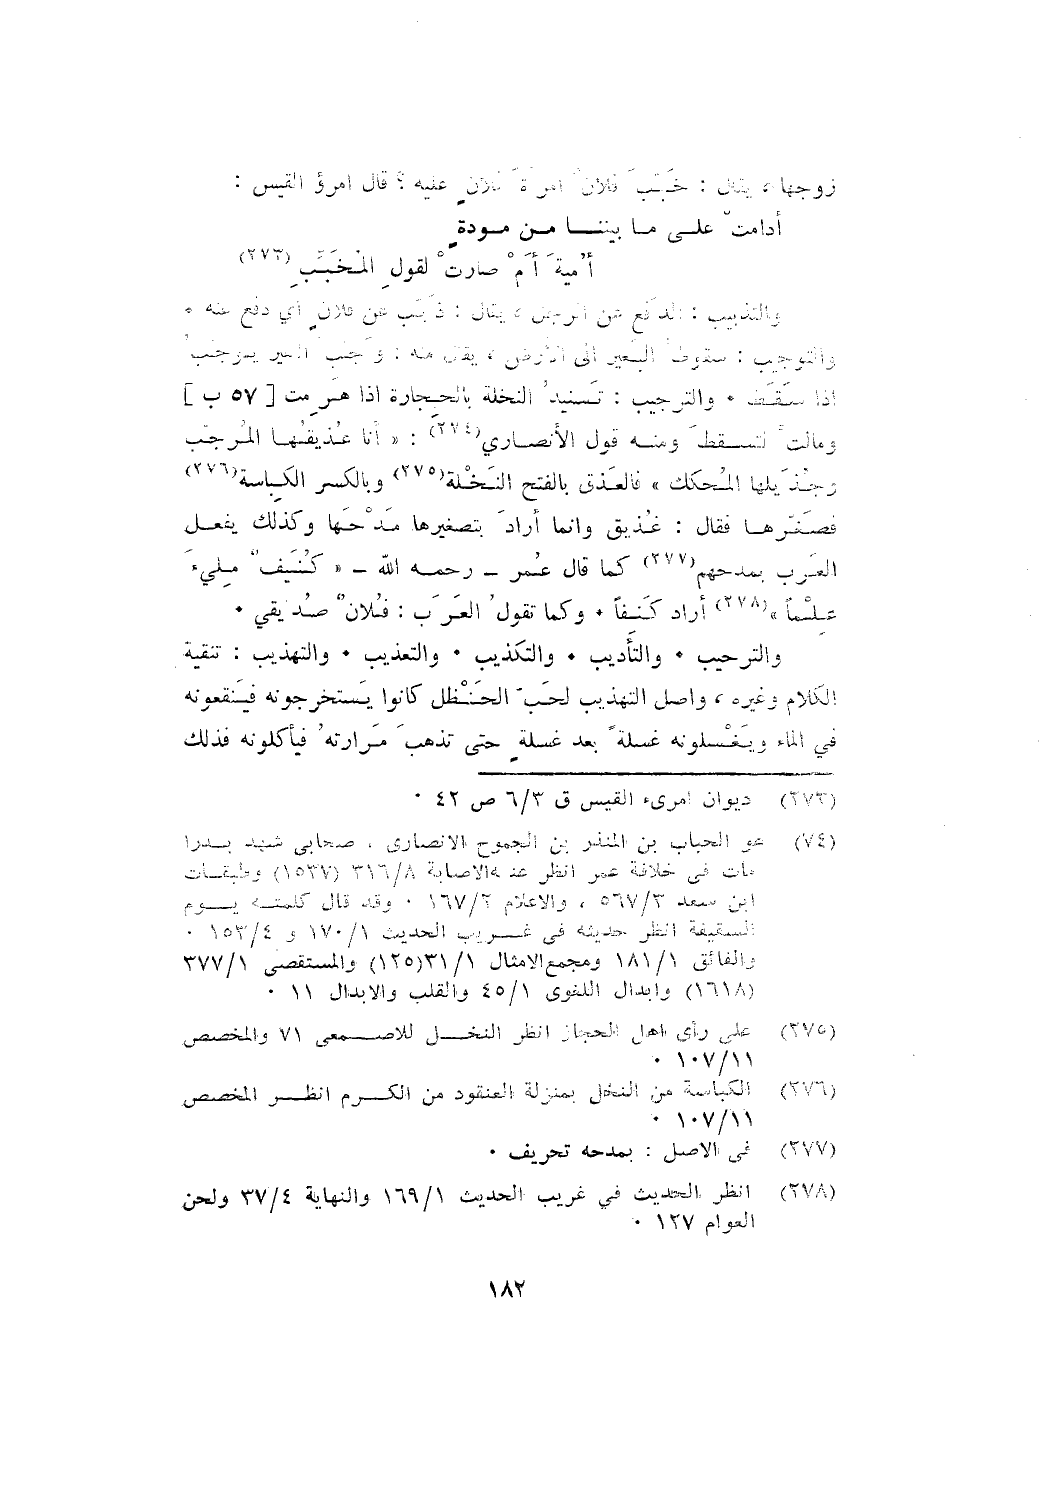 زوجها ، يقال : خَبَّبَ فلانٌ امرأةَ فلانٍ عليه ؟ قال امرؤ القيس :
أدامتْ علـى مـا بيننـــا مـن مـودةٍ
أُميةُ أَمْ صارتْ لقولِ المُخَبِّبِ (٢٧٣)
والتذبيب : الدفع عن الرجل ، يقال : ذَبَّبَ عن فلانٍ أي دفع عنه •
والتوجيب : سقوطُ البَعير الى الأرض ، يقال منه : وَجَّبَ البعير يـوجّبُ
اذا سَقَطَ • والترجيب : تَسنيدُ النخلة بالحـِجارة اذا هَـرِمت [ ٥٧ ب ]
ومالتْ لتسـقطَ ومنـه قول الأنصـاري(٢٧٤) : « أنا عُذَيقُهـا المُرجّب
وجُذَيلها المُحكك » فالعَذق بالفتح النَخْلة(٢٧٥) وبالكسر الكِباسة(٢٧٦)
فصَغّرهـا فقال : عُذيق وانما أرادَ بتصغيرها مَدْحَها وكذلك يفعـل
العَرب بمدحهم(٢٧٧) كما قال عُمر ــ رحمـه الله ــ « كُنَيف مُليءَ
عِلْماً »(٢٧٨) أراد كَنَفاً • وكما تقولُ العَرَب : فُلانٌ صُدَيقي •
والترحيب • والتأديب • والتكذيب • والتعذيب • والتهذيب : تنقية
الكلام وغيره ، واصل التهذيب لحَبّ الحَنْظل كانوا يَستخرجونه فيَنقعونه
في الماء ويَغْسلونه غسلةً بعد غسلةٍ حتى تذهبَ مَرارتهُ فيأكلونه فذلك
(٢٧٣) ديوان امرىء القيس ق ٦/٣ ص ٤٢ •
(٧٤) هو الحباب بن المنذر بن الجموح الانصارى ، صحابى شهد بـدرا
مات فى خلافة عمر انظر عنه الاصابة ٣١٦/٨ (١٥٣٧) وطبقـات
ابن سعد ٥٦٧/٣ ، والاعلام ١٦٧/٢ • وقد قال كلمتـه يـوم
السقيفة انظر حديثه فى غـريب الحديث ١٧٠/١ و ١٥٣/٤ •
والفائق ١٨١/١ ومجمع الامثال ٣١/١(١٢٥) والمستقصى ٣٧٧/١
(١٦١٨) وابدال اللغوى ٤٥/١ والقلب والابدال ١١ •
(٢٧٥) على رأى اهل الحجاز انظر النخـل للاصـمعى ٧١ والمخصص
١٠٧/١١ •
(٢٧٦) الكباسة من النخل بمنزلة العنقود من الكـرم انظـر المخصص
١٠٧/١١ •
(٢٧٧) فى الاصل : بمدحه تحريف •
(٢٧٨) انظر الحديث في غريب الحديث ١٦٩/١ والنهاية ٣٧/٤ ولحن
العوام ١٢٧ •
١٨٢